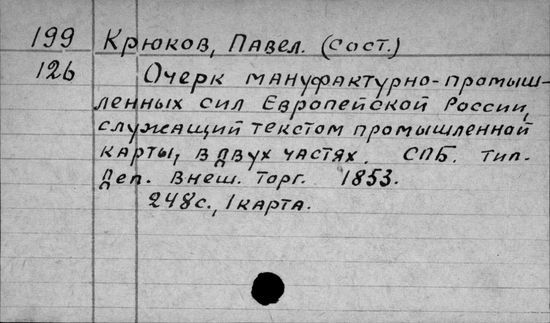 199 Крюков, Павел. (сост.)
126 Очерк мануфактурно-промыш-
ленных сил Европейской России,
служащий текстом промышленной
карты, в двух частях. СПБ. тип.
Деп. внеш. торг. 1853.
248с., 1 карта.